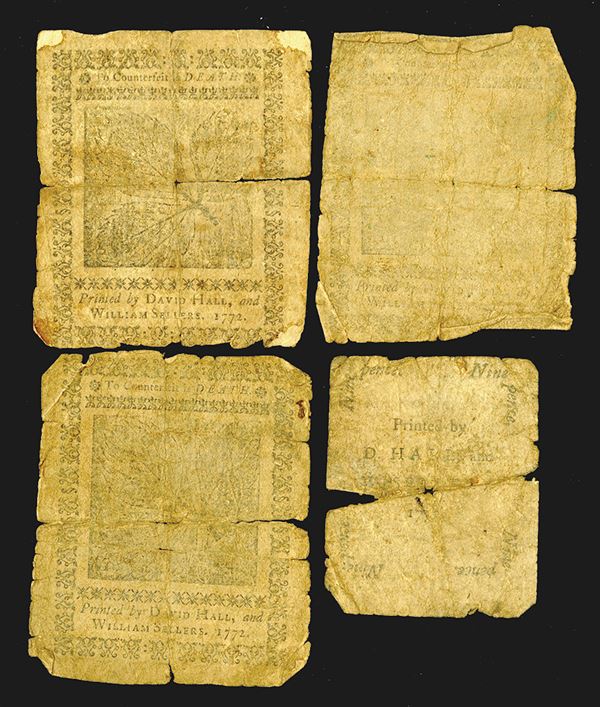 To Counterfeit is DEATH.
Printed by DAVID HALL, and
WILLIAM SELLERS. 1772.
Printed by
To Counterfeit is DEATH.
Printed by DAVID HALL, and
WILLIAM SELLERS. 1772.
Nine pence.
Nine pence.
Printed by
D. HALL, and
Nine pence.
Nine pence.